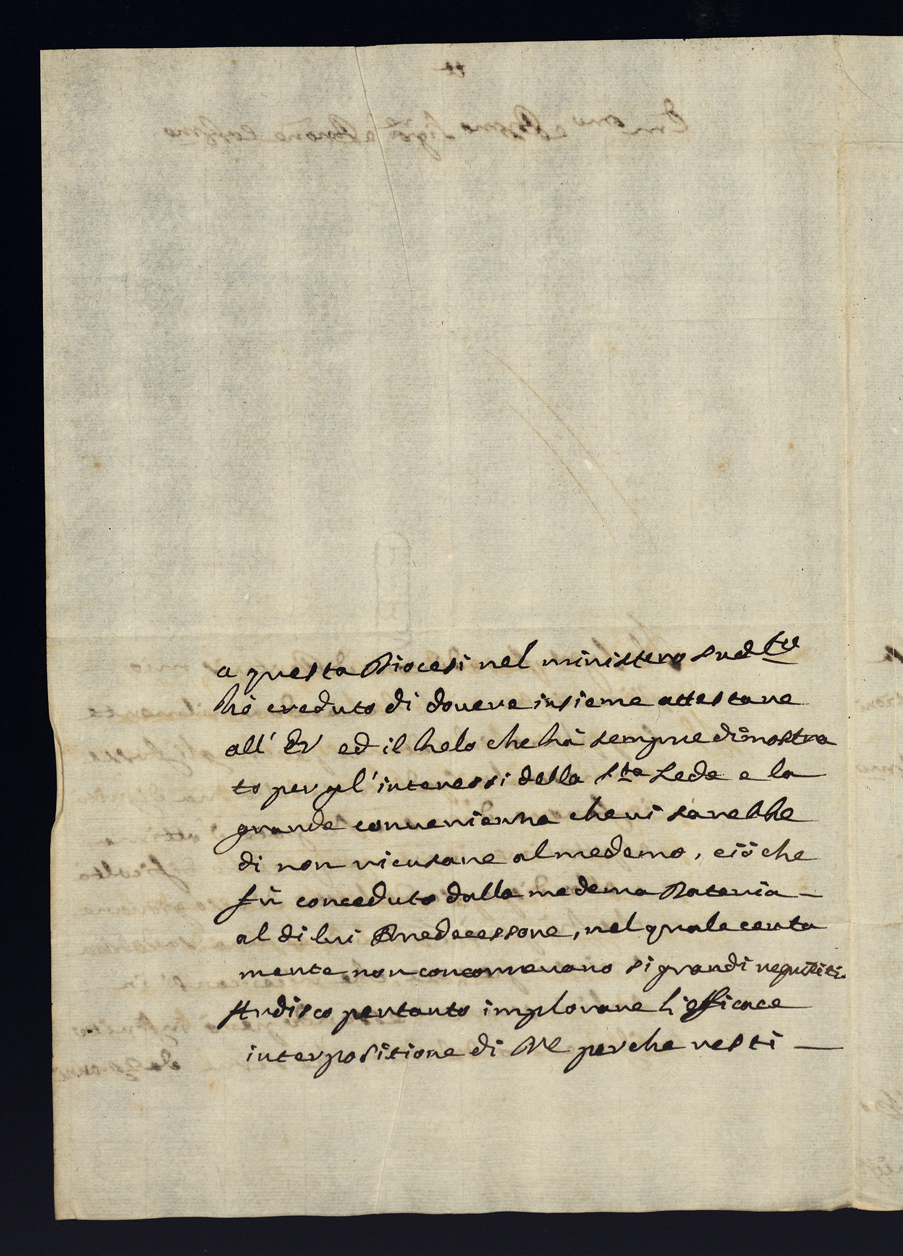 a questa Diocesi nel ministero sud.to
hò creduto di dovere insieme attestare
all' EV ed il zelo che hà sempre dimostra
to per gl' interessi della S.ta Sede e la
grande convenienza che vi sarebbe
di non ricusare al medemo, ciò che
fù conceduto dalla medema Dateria —
al di lui Predecessore, nel quale certa
mente non concorrevano si grandi requisiti.
Ardisco pertanto implorare l'efficace
interpositione di VE perche resti —